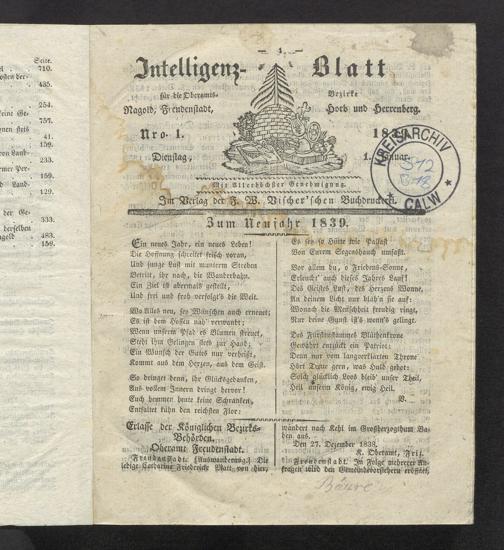 Seite.
710.
435.
254.
757.
41.
159.
233.
159.
333.
483.
159.
Intelligenz- Blatt
für die Oberamts- Bezirke
Nagold, Freudenstadt, Horb und Herrenberg.
Nro. 1.
Dienstag,
KREISARCHIV
CALW
Mit Allerhöchster Genehmigung.
Im Verlag der F. W. Vischer'schen Buchdruckerei.
Zum Neujahr 1839.
Ein neues Jahr, ein neues Leben!
Die Hoffnung schreitet frisch voran,
Und junge Lust mit munterm Streben
Betritt, ihr nach, die Wanderbahn.
Ein Ziel ist abermals gestellt,
Und frei und froh verfolgt's die Welt.
Wo Alles neu, sey Wünschen auch erneuet;
Es ist dem Hoffen nah' verwandt;
Wenn unserm Pfad es Blumen streuet,
Steht ihm Gelingen stets zur Hand;
Ein Wunsch der Gutes nur verheißt,
Kommt aus dem Herzen, aus dem Geist.
So dringet denn, ihr Glücksgedanken,
Aus vollem Innern dringt hervor!
Euch hemmen heute keine Schranken,
Entfaltet kühn den reichsten Flor:
Es sey so Hütte wie Pallast
Von Eurem Segenshauch umfaßt.
Vor allem du, o Friedens-Sonne,
Erleucht' auch dieses Jahres Lauf!
Des Geistes Lust, des Herzens Wonne,
An deinem Licht nur blüh'n sie auf:
Wonach die Menschheit freudig ringt,
Nur deine Gunst ist's wenn's gelingt.
Des Fürstenstammes Blüthenkrone
Gewährt entzückt ein Patriot:
Denn nur vom langverklärten Throne
Hört Treue gern, was Huld gebot:
Solch glücklich Loos bleib' unser Theil,
Heil unserm König, ewig Heil.
Erlasse der Königlichen Bezirks-
Behörden.
Oberamt Freudenstadt.
Freudenstadt. [Auswanderung.] Die
ledige Catharine Friederike Platt von hier,
wandert nach Kehl im Großherzogthum Ba-
den aus.
Den 27. Dezember 1838.
K. Oberamt, Friz.
Freudenstadt. In Folge mehrerer An-
fragen wird den Gemeindevorstehern eröffnet,